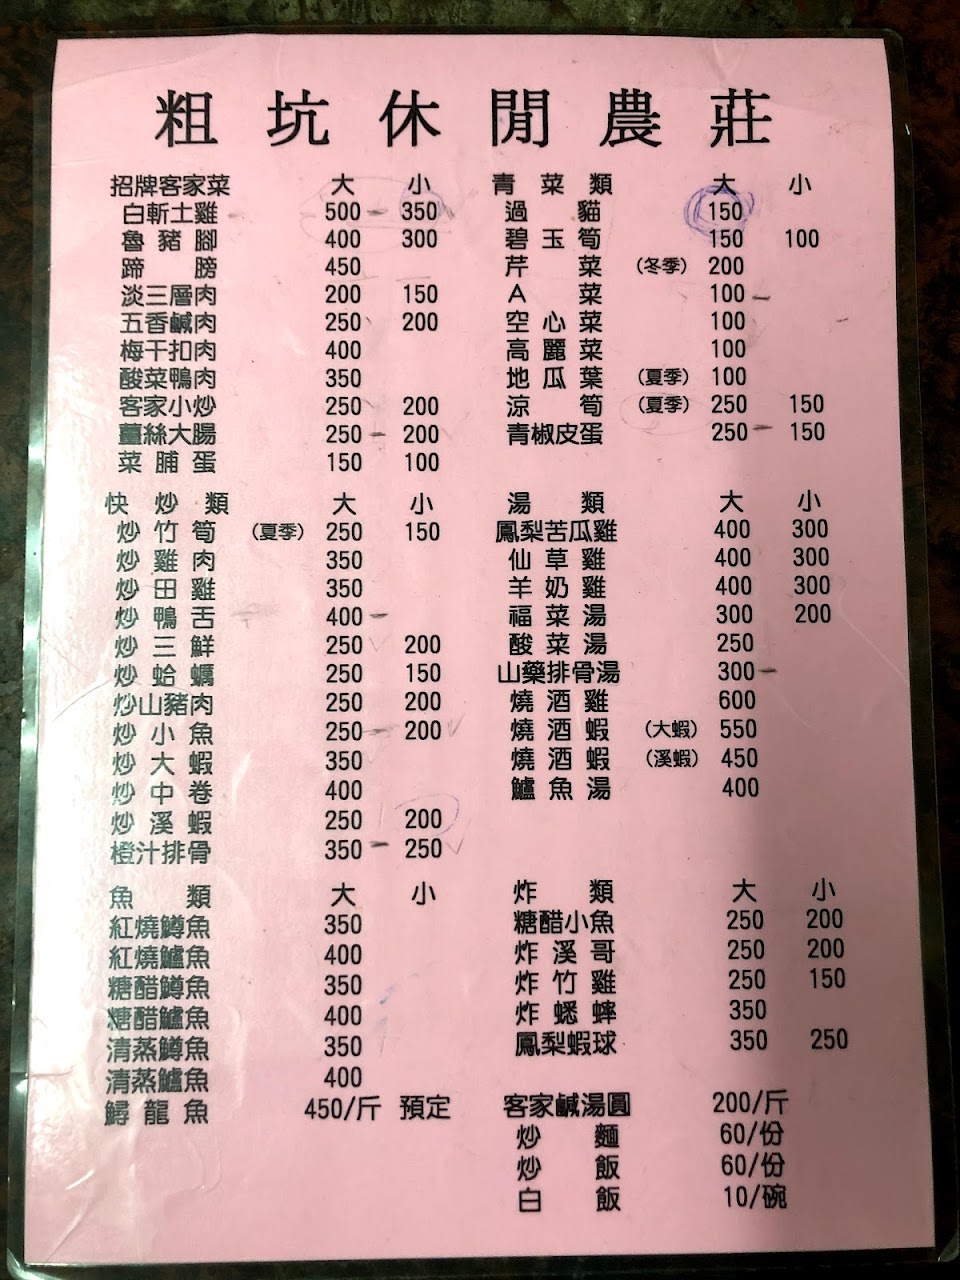 粗坑休閒農莊
招牌客家菜 大 小
白斬土雞 500 350
魯豬腳 400 300
蹄膀 450
淡三層肉 200 150
五香鹹肉 250 200
梅干扣肉 400
酸菜鴨肉 350
客家小炒 250 200
薑絲大腸 250 200
菜脯蛋 150 100
青菜類 大 小
過貓 150
碧玉筍 150 100
芹菜 (冬季) 200
A菜 100
空心菜 100
高麗菜 100
地瓜葉 (夏季) 100
涼筍 (夏季) 250 150
青椒皮蛋 250 150
快炒類 大 小
炒竹筍 (夏季) 250 150
炒雞肉 350
炒田雞 350
炒鴨舌 400
炒三鮮 250 200
炒蛤蠣 250 150
炒山豬肉 250 200
炒小魚 250 200
炒大蝦 350
炒中卷 400
炒溪蝦 250 200
橙汁排骨 350 250
湯類 大 小
鳳梨苦瓜雞 400 300
仙草雞 400 300
羊奶雞 400 300
福菜湯 300 200
酸菜湯 250
山藥排骨湯 300
燒酒雞 600
燒酒蝦 (大蝦) 550
燒酒蝦 (溪蝦) 450
鱸魚湯 400
魚類 大 小
紅燒鱒魚 350
紅燒鱸魚 400
糖醋鱒魚 350
糖醋鱸魚 400
清蒸鱒魚 350
清蒸鱸魚 400
鱘龍魚 450/斤 預定
炸類 大 小
糖醋小魚 250 200
炸溪哥 250 200
炸竹雞 250 150
炸蟋蟀 350
鳳梨蝦球 350 250
客家鹹湯圓 200/斤
炒麵 60/份
炒飯 60/份
白飯 10/碗